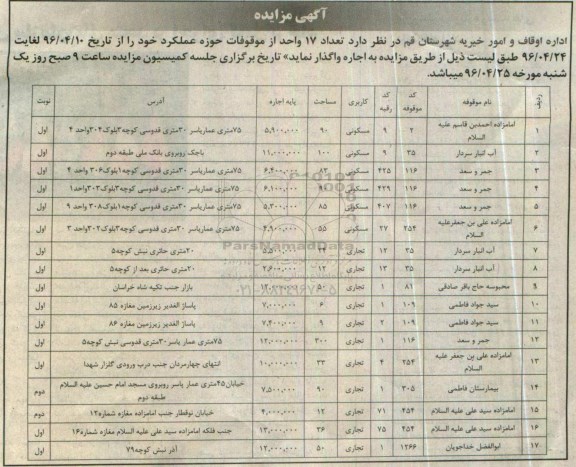 آگهی مزایده
اداره اوقاف و امور خیریه شهرستان قم در نظر دارد تعداد ۱۷ واحد از موقوفات حوزه عملکرد خود را از تاریخ ۹۶/۰۴/۱۰ لغایت
۹۶/۰۴/۲۴ طبق لیست ذیل از طریق مزایده به اجاره واگذار نماید» تاریخ برگزاری جلسه کمیسیون مزایده ساعت ۹ صبح روز یک
شنبه مورخه ۹۶/۰۴/۲۵ میباشد.
ردیف نام موقوفه کد موقوفه کد رقبه کاربری مساحت پایه اجاره آدرس نوبت
۱ امامزاده احمدبن قاسم علیه السلام ۲ ۹ مسکونی ۹۰ ۵,۹۰۰,۰۰۰ ۷۵متری عماریاسر ۳۰متری قدوسی کوچه۳بلوک۳۰۴واحد ۴ اول
۲ آب انبار سردار ۳۵ ۹ مسکونی ۱۰۰ ۱۱,۰۰۰,۰۰۰ باجک روبروی بانک ملی طبقه دوم اول
۳ جمر و سعد ۱۱۶ ۴۲۵ مسکونی ۸۲ ۶,۴۰۰,۰۰۰ ۷۵متری عماریاسر ۳۰متری قدوسی کوچه۱بلوک۳۰۶واحد ۴ اول
۴ جمر و سعد ۱۱۶ ۴۲۹ مسکونی ۹۰ ۶,۱۰۰,۰۰۰ ۷۵متری عماریاسر ۳۰متری قدوسی کوچه۳بلوک۳۰۳واحد۱ اول
۵ جمر و سعد ۱۱۶ ۴۰۷ مسکونی ۸۵ ۵,۳۰۰,۰۰۰ ۷۵متری عماریاسر ۳۰متری قدوسی کوچه۱بلوک۳۰۸ واحد ۹ اول
۶ امامزاده علی بن جعفرعلیه السلام ۲۵۴ ۲۷ مسکونی ۵۵ ۴,۹۰۰,۰۰۰ ۷۵متری عماریاسر ۳۰متری قدوسی کوچه۳بلوک۳۰۲واحد ۳ اول
۷ آب انبار سردار ۳۵ ۱۲ تجاری ۲۴ ۵,۵۰۰,۰۰۰ ۲۰متری حائری نبش کوچه۵ اول
۸ آب انبار سردار ۳۵ ۱۳ تجاری ۱۲ ۲,۶۰۰,۰۰۰ ۲۰متری حائری بعد از کوچه۵ اول
۹ محبوسه حاج باقر صادقی ۸۱ ۱ تجاری ۵۰ بازار جنب تکیه شاه خراسان اول
۱۰ سید جواد فاطمی ۱۰۹ ۱ تجاری ۶ ۷,۰۰۰,۰۰۰ پاساژ الغدیر زیرزمین مغازه ۸۵ اول
۱۱ سید جواد فاطمی ۱۰۹ ۲ تجاری ۹ ۷,۴۰۰,۰۰۰ پاساژ الغدیر زیرزمین مغازه ۸۶ اول
۱۲ جمر و سعد ۱۱۶ ۱ تجاری ۳۰۰ ۱۲,۰۰۰,۰۰۰ ۷۵متری عمار یاسر ۳۰متری قدوسی نبش کوچه۵ اول
۱۳ امامزاده علی بن جعفر علیه السلام ۲۵۴ ۴ تجاری ۳۳ ۱۰,۰۰۰,۰۰۰ انتهای چهارمردان جنب درب ورودی گلزار شهدا اول
۱۴ بیمارستان فاطمی ۳۰۵ ۱ تجاری ۹۰ ۷,۵۰۰,۰۰۰ خیابان۴۵متری عمار یاسر روبروی مسجد امام حسین علیه السلام طبقه دوم دوم
۱۵ امامزاده سید علی علیه السلام ۴۵۴ ۷۱ تجاری ۱۲ ۴,۰۰۰,۰۰۰ خیابان نوقطار جنب امامزاده مغازه شماره۱۲ دوم
۱۶ امامزاده سید علی علیه السلام ۴۵۴ ۷۵ تجاری ۳۶ ۱۳,۰۰۰,۰۰۰ جنب فلکه امامزاده سید علی علیه السلام مغازه شماره۱۶ اول
۱۷ ابوالفضل خداجویان ۱۲۶۶ ۱ تجاری ۵۰ ۱۲,۰۰۰,۰۰۰ آذر نبش کوچه۷۹ اول
ParsNamadData